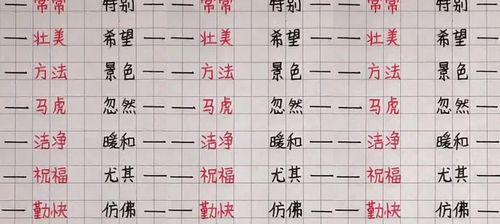 — 常常 特别 — — 常常 特别 — — 常常 特别
— 壮美 希望 — — 壮美 希望 — — 壮美 希望
— 方法 景色 — — 方法 景色 — — 方法 景色
— 马虎 忽然 — — 马虎 忽然 — — 马虎 忽然
— 洁净 暖和 — — 洁净 暖和 — — 洁净 暖和
— 祝福 尤其 — — 祝福 尤其 — — 祝福 尤其
— 勤快 仿佛 — — 勤快 仿佛 — — 勤快 仿佛